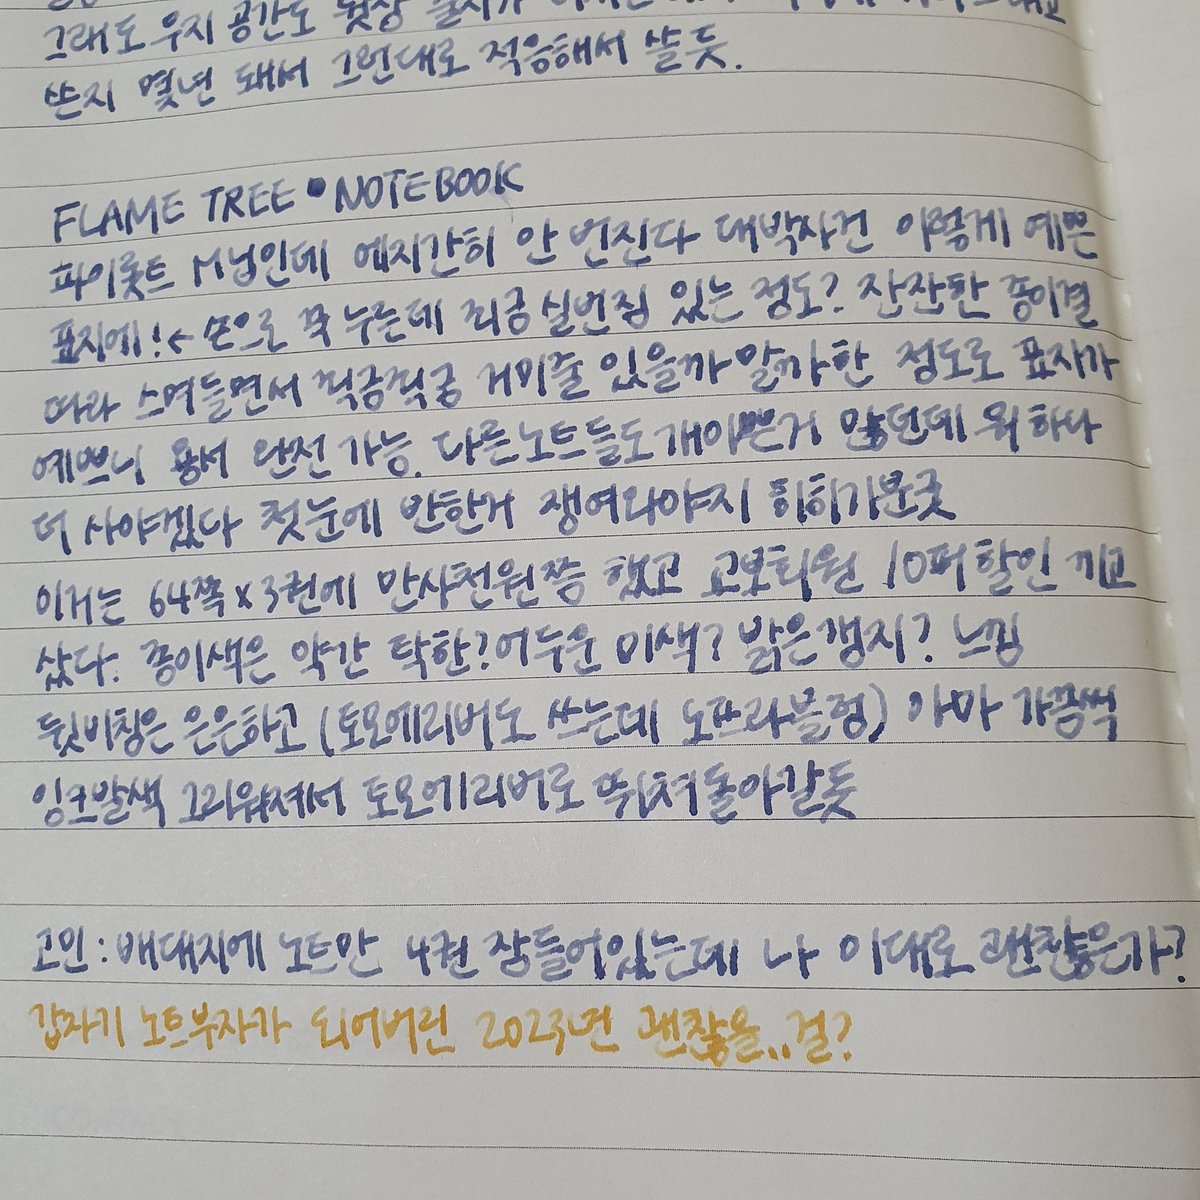 그래도 우지 공간도
쓴지 몇년 돼서 그런대로 적응해서 쓸 듯.
FLAME TREE • NOTEBOOK
파이롯트 M닙인데 에지간히 안 번진다 대박사건 이렇게 예쁜
표지에! ← 손으로 꾹 누르는데 쬐금 실번짐 있는 정도? 잔잔한 종이결
따라 스며들면서 쬐금쬐금 거미줄 있을까말까한 정도로 표지가
예쁘니 용서 완전 가능. 다른노트들도개이쁜거 많던데 뭐 하나
더 사야겠다 첫눈에 반한거 쟁여와야지 히히기분굿
이거는 64쪽x3권에 만사천원쯤 했고 교보회원 10퍼할인 끼고
샀다. 종이색은 약간 탁한? 어두운 미색? 밝은갱지? 느낌
뒷비침은 은은하고 (토모에리버도 쓰는데 노프라블럼) 아마 가끔씩
잉크발색 그리워져서 토모에리버로 뛰쳐돌아갈듯
고민: 배대지에 노트만 4권 잠들어있는데 나 이대로 괜찮은가?
갑자기 노트부자가 되어버린 2023년 괜찮을..걸?